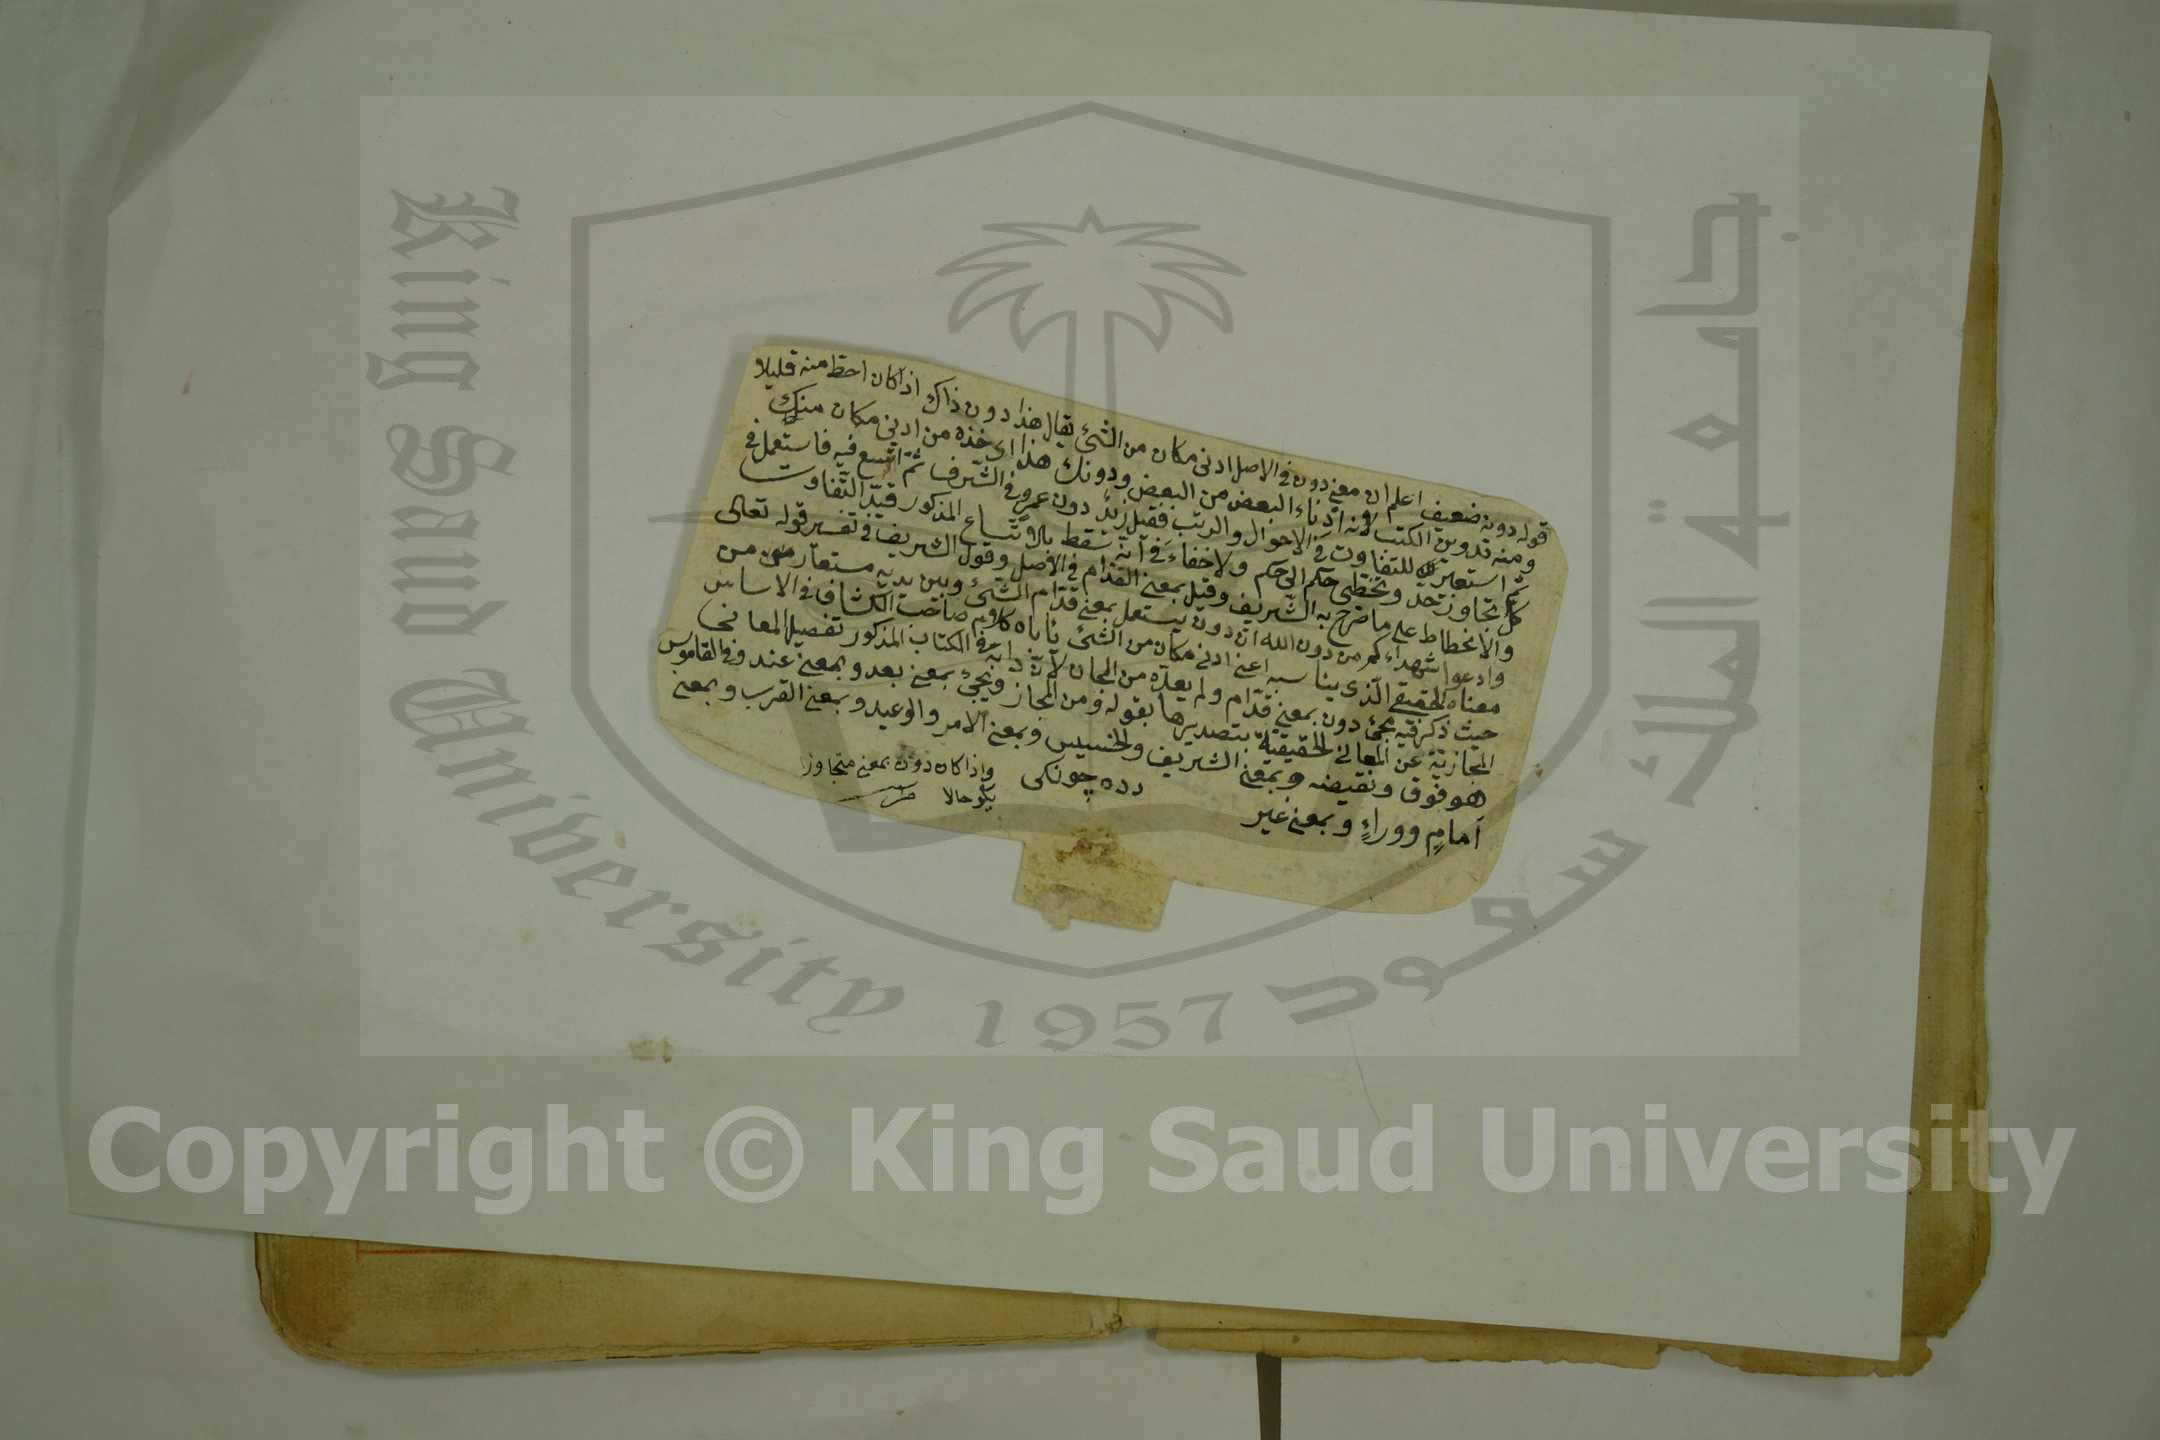 قوله دونه ضعيف اعلم ان معنى دون في الاصل ادنى مكان من الشئ يقال هذا دون ذاك اذا كان احط منه قليلا
ومنه تدوين الكتب لانه ادناء البعض من البعض ودونك هذا اى خذه من ادنى مكان منك
ثم استعير للتفاوت في الاحوال والرتب فقيل زيد دون عمرو في الشرف ثم اتسع فيه فاستعمل في
كل تجاوز حد وتخطى حكم الى حكم ولاخفاء في انه سقط بالاتساع المذكور قيد التفاوت
والانحطاط على ما صرح به الشريف وقيل بمعنى القدام في الاصل وقول الشريف في تفسير قوله تعالى
وادعوا شهداءكم من دون الله ان دون يستعمل بمعنى قدام الشئ وبين يديه مستعار من
معناه الحقيقي الذى يناسبه اعنى ادنى مكان من الشئ يأباه كلام صاحب الكشاف في الاساس
حيث ذكر فيه مجئ دون بمعنى قدام ولم يعده من المجاز لان دابه في الكتاب المذكور تفصيل المعانى
المجازية عن المعانى الحقيقية بتصديرها بقوله ومن المجاز ويجئ بمعنى بعد وبمعنى عند وفي القاموس
هو فوق ونقيضه وبمعنى الشريف والخسيس وبمعنى الامر والوعيد وبمعنى القرب وبمعنى
امام ووراء وبمعنى غير
دده چونكى
واذا كان دون بمعنى متجاوزا
يكو حالا
King Saud University
1957
جامعة الملك سعود
Copyright © King Saud University